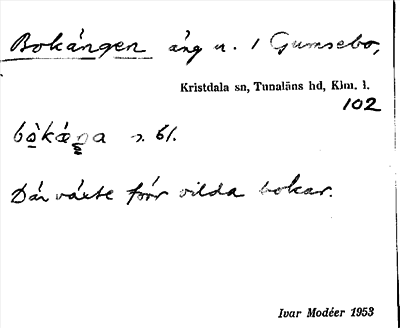 Bokängen äng u. 1 Gumsebo,
Kristdala sn, Tunaläns hd, Klm. l.
102
bò̱kæŋa s. 61.
Där växte förr vilda bokar.
Ivar Modéer 1953